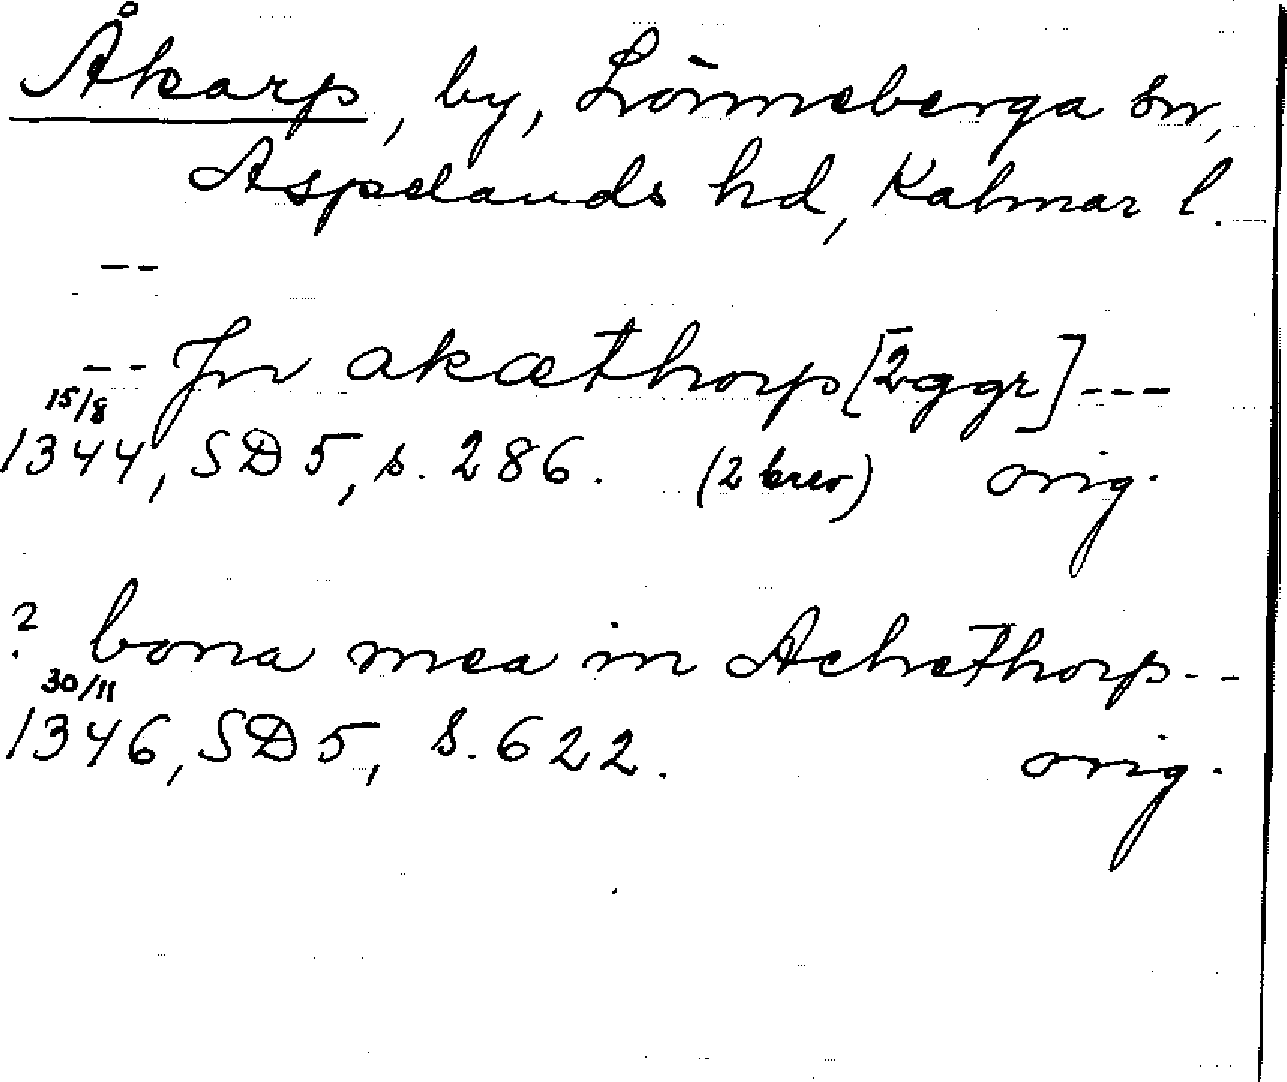 Åkarp, by, Lönneberga sn,
Aspelands hd, Kalmar l.
--
-- Jn akæthorp [2 ggr] ---
15/8
1344, SD 5, s. 286. (2 brev) orig.
? bona mea in Achethorp --
30/11
1346, SD 5, s. 622. orig.